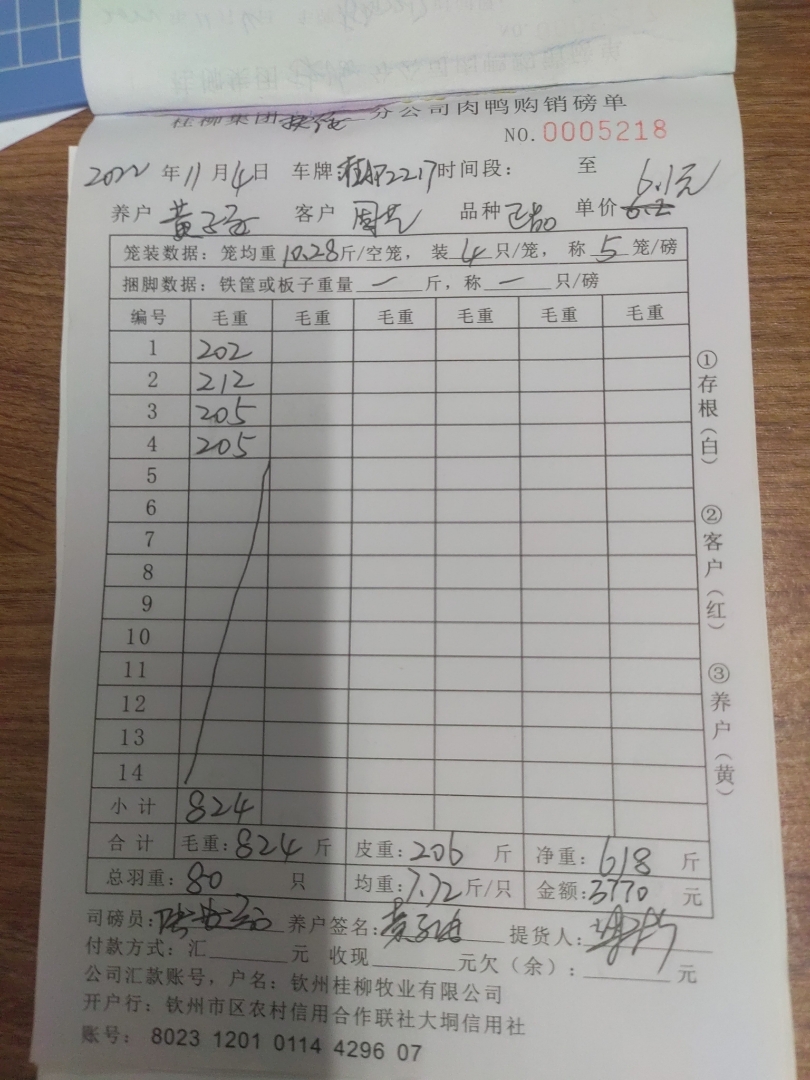 桂柳集团 分公司肉鸭购销磅单
NO.0005218
2022年11月4日 车牌:2217 时间段: 至
6.1元
养户 黄 客户 周 品种 单价 6.2
笼装数据:笼均重10.28斤/空笼,装4只/笼,称5笼/磅
捆脚数据:铁筐或板子重量一斤,称一只/磅
编号 毛重 毛重 毛重 毛重 毛重 毛重
1 202
2 212
3 205
4 205
5
6
7
8
9
10
11
12
13
14
小计 824
合计 毛重:824斤 皮重:206斤 净重:618斤
总羽重:80只 均重:7.72斤/只 金额:3770元
司磅员: 养户签名:黄 提货人:
付款方式:汇____元 收现____元欠(余):____元
公司汇款账号,户名:钦州桂柳牧业有限公司
开户行:钦州市区农村信用合作联社大垌信用社
账号: 8023 1201 0114 4296 07
①存根(白)
②客户(红)
③养户(黄)